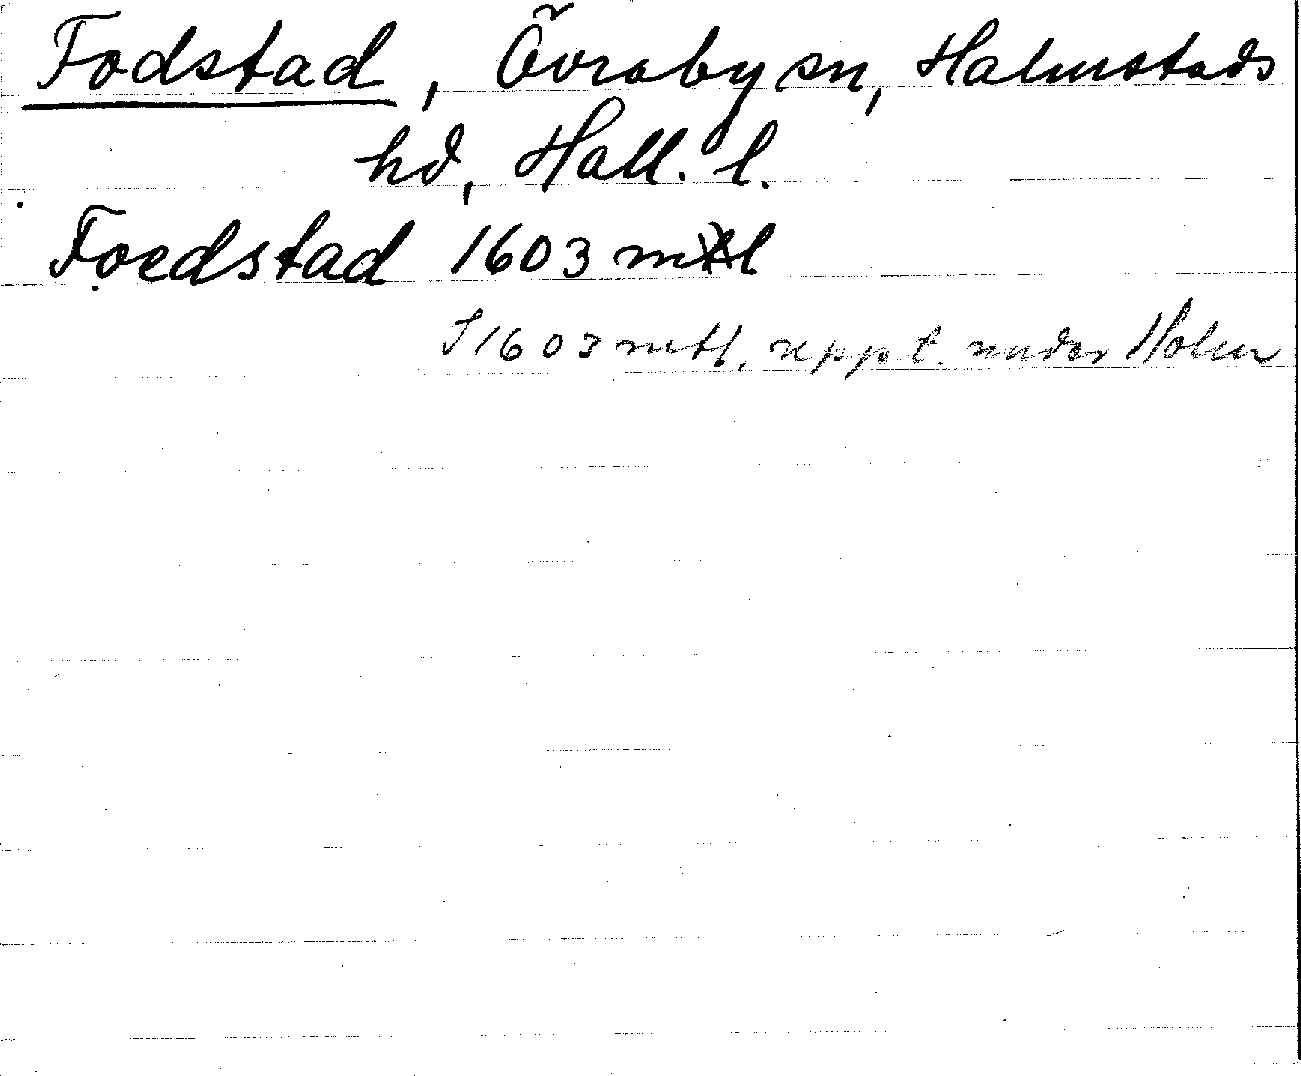 Fodstad, Övraby sn, Halmstads
hd, Hall. l.
Foedstad 1603 mtl
I 1603 mtl, uppt. under Holm